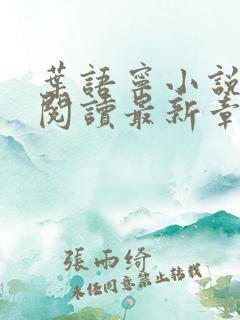 葉語寧小說
閱讀最新章
張雨綺
未經同意禁止轉載